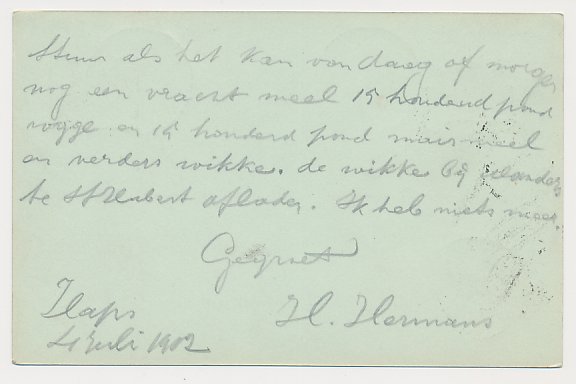 Stuur als het kan van daag of morgen
nog een vracht meel 15 honderd pond
rogge en 15 honderd pond mais meel
en verders wikke. de wikke bij
te St Hubert afladen. Ik heb niets meer.
Gegroet
Haps H. Hermans
4 Juli 1902